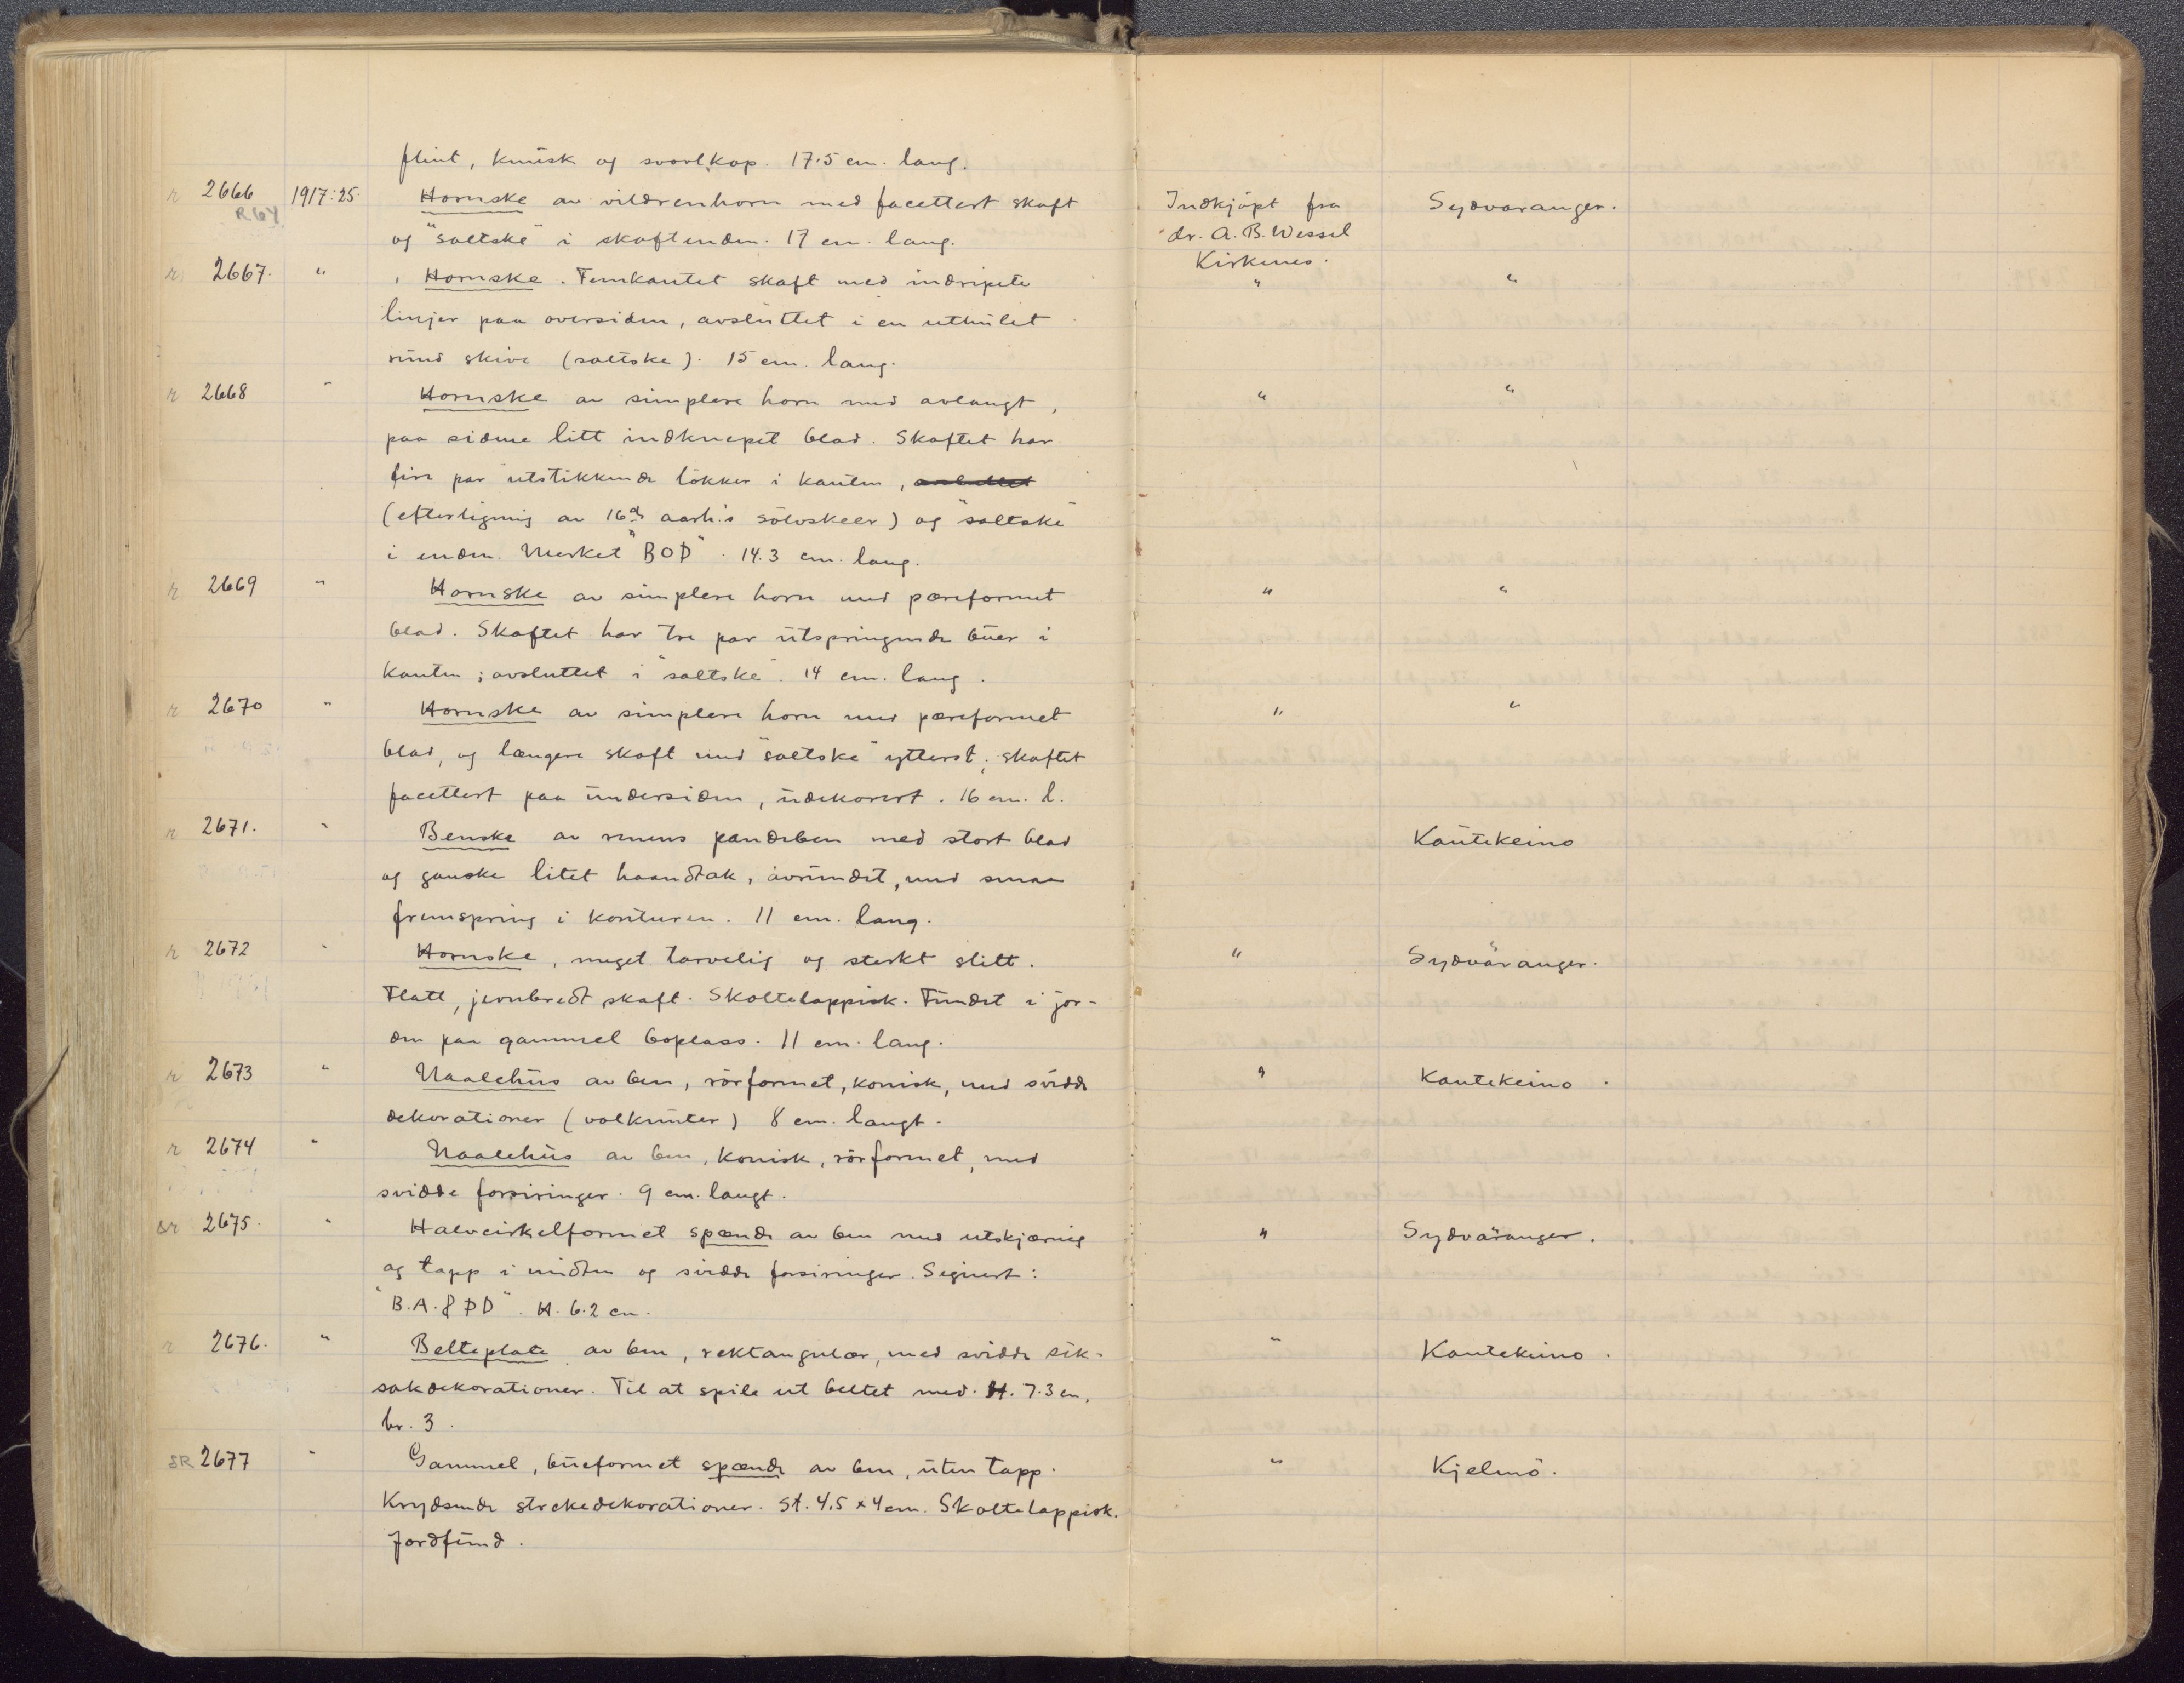 flint, knusk og svovlkop. 17.5 cm. lang.
r 2666 1917:25. Hornske av vildrenhorn med facettert skaft Indkjøpt fra Sydvaranger.
R.64
og "saltske" i skaftenden. 17 cm. lang. dr. A. B. Wessel
Kirkenes.
r 2667. " Hornske. Femkantet skaft med indripete " "
linjer paa oversiden, avsluttet i en uthulet
rund skive (saltske). 15 cm. lang.
r 2668 " Hornske av simplere horn med avlangt, " "
paa sidene litt indknepet blad. Skaftet har
fire par utstikkende løkker i kanten, avsluttet
(efterligning av 16de aarh.'s sölvskeer) og "saltske"
i enden. Merket "BOD". 14.3 cm. lang.
r 2669 " Hornske av simplere horn med pæreformet " "
blad. Skaftet har tre par utspringende buer i
kanten; avsluttet i "saltske". 14 cm. lang.
r 2670 " Hornske av simplere horn med pæreformet " "
blad, og længere skaft med "saltske" ytterst; skaftet
facettert paa undersiden, udekorert. 16 cm. l.
r 2671. " Benske av renens pandeben med stort blad Kautekeino
og ganske litet haandtak, avrundet, med smaa
fremspring i konturen. 11 cm. lang.
r 2672 " Hornske, meget tarvelig og sterkt slitt. " Sydvaranger.
Flatt, jevnbredt skaft. Skoltelappisk. Fundet i jor-
den paa gammel boplass. 11 cm. lang.
r 2673 " Naalehus av ben, rörformet, konisk, med svidde " Kautekeino.
dekorationer (valknuter) 8 cm. langt.
r 2674 " Naalehus av ben, konisk, rörformet, med
svidde forsiringer. 9 cm. langt.
sr 2675. " Halvcirkelformet spænde av ben med utskjæring " Sydvaranger.
og tapp i midten og svidde forsiringer. Signert:
"B.A.S PD". H. 6.2 cm.
r 2676. " Belteplate av ben, rektangulær, med svidde sik- " Kautekeino.
sakdekorationer. Til at spile ut beltet med. H. 7.3 cm,
br. 3.
SR 2677 " Gammel, bueformet spænde av ben, uten tapp. " Kjelmö.
Krydsende strekedekorationer. St. 4,5 x 4 cm. Skoltelappisk.
Jordfund.